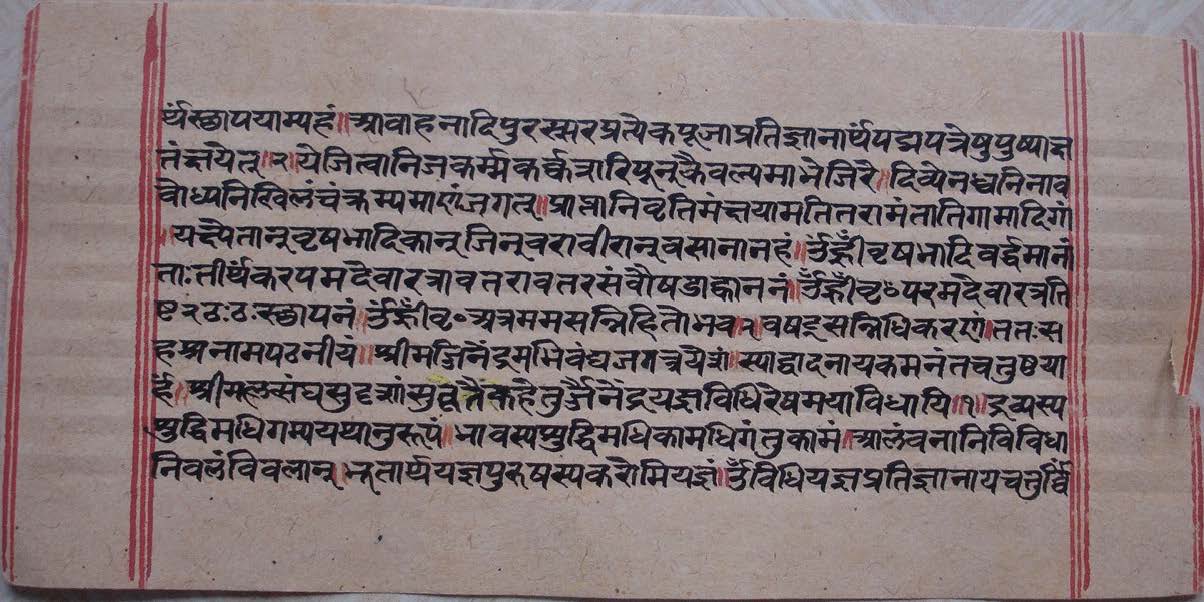 र्थ्यंस्छापयाम्यहं॥आवाहनादिपुरस्सरप्रत्येकपूजाप्रतिज्ञानार्थंपद्मपत्रेषुपुष्पाक्ष
तंक्षयेत्॥२॥येजित्वानिजकर्म्मकर्क्कशरिपून्कैवल्यमाभेजिरे॥दिव्येनध्वनिनाव
वोध्यनिखिलंचंक्रम्यमाणंजगत्॥प्राप्तानिवृतिमंक्षयामतितरामंतातिगामादिगां
॥यक्ष्येतान्वृषभादिकान्जिन्वरावीरान्वसानानहं॥ॐह्रींवृषभादिवर्द्धमानां
ताःतीर्थंकरपमदेवारत्रावतरावतरसंवौषडाह्वाननं॥ॐह्रींवृ॰परमदेवारत्रति
ष्ट२ठःठःस्छापनं॥ॐह्रींवृ॰अत्रममसन्निहितोभव२वषट्सन्निधिकरणं॥ततःस
हस्रनामपठनीयं॥श्रीमज्जिनेंद्रमभिवंद्यजगत्रयेशं॥स्याद्वादनायकमनंतचतुष्टया
र्हं॥श्रीमूलसंघसुदृशांसुकृतैकहेतुर्जैनेंद्रयज्ञविधिरेषमयाविधायि॥१॥द्रव्यस्य
शुद्धिमधिगम्ययथानुरूपं॥भावस्यशुद्धिमधिकामधिगंतुकामं॥आलंवनानिविविधा
निवलंविवलान्॥भूतार्थयज्ञपुरुषस्यकरोमियज्ञं॥ॐविधियज्ञप्रतिज्ञानायचतुर्विं